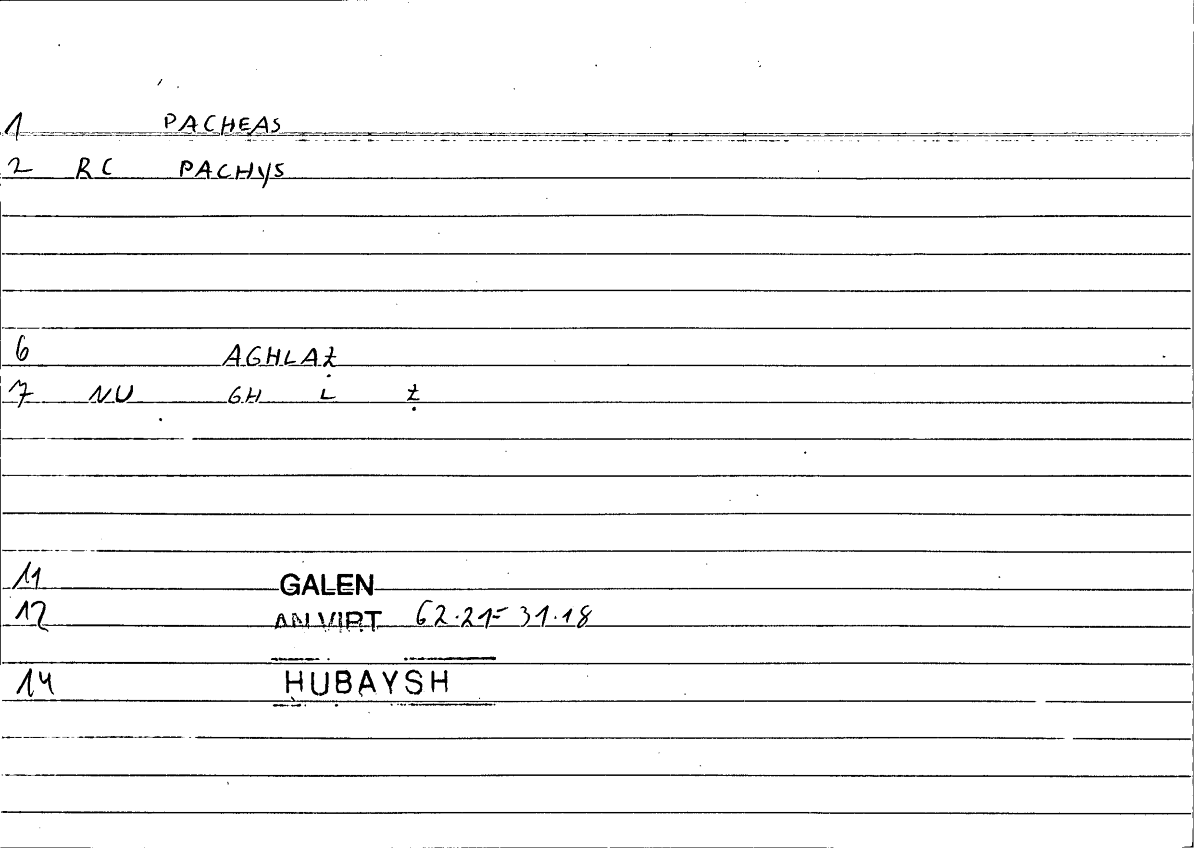 1 PACHEAS
2 RC PACHYS
6 AGHLAẒ
7 NU GH L Ẓ
11 GALEN
12 AN VIRT 62.21= 31.18
14 HUBAYSH